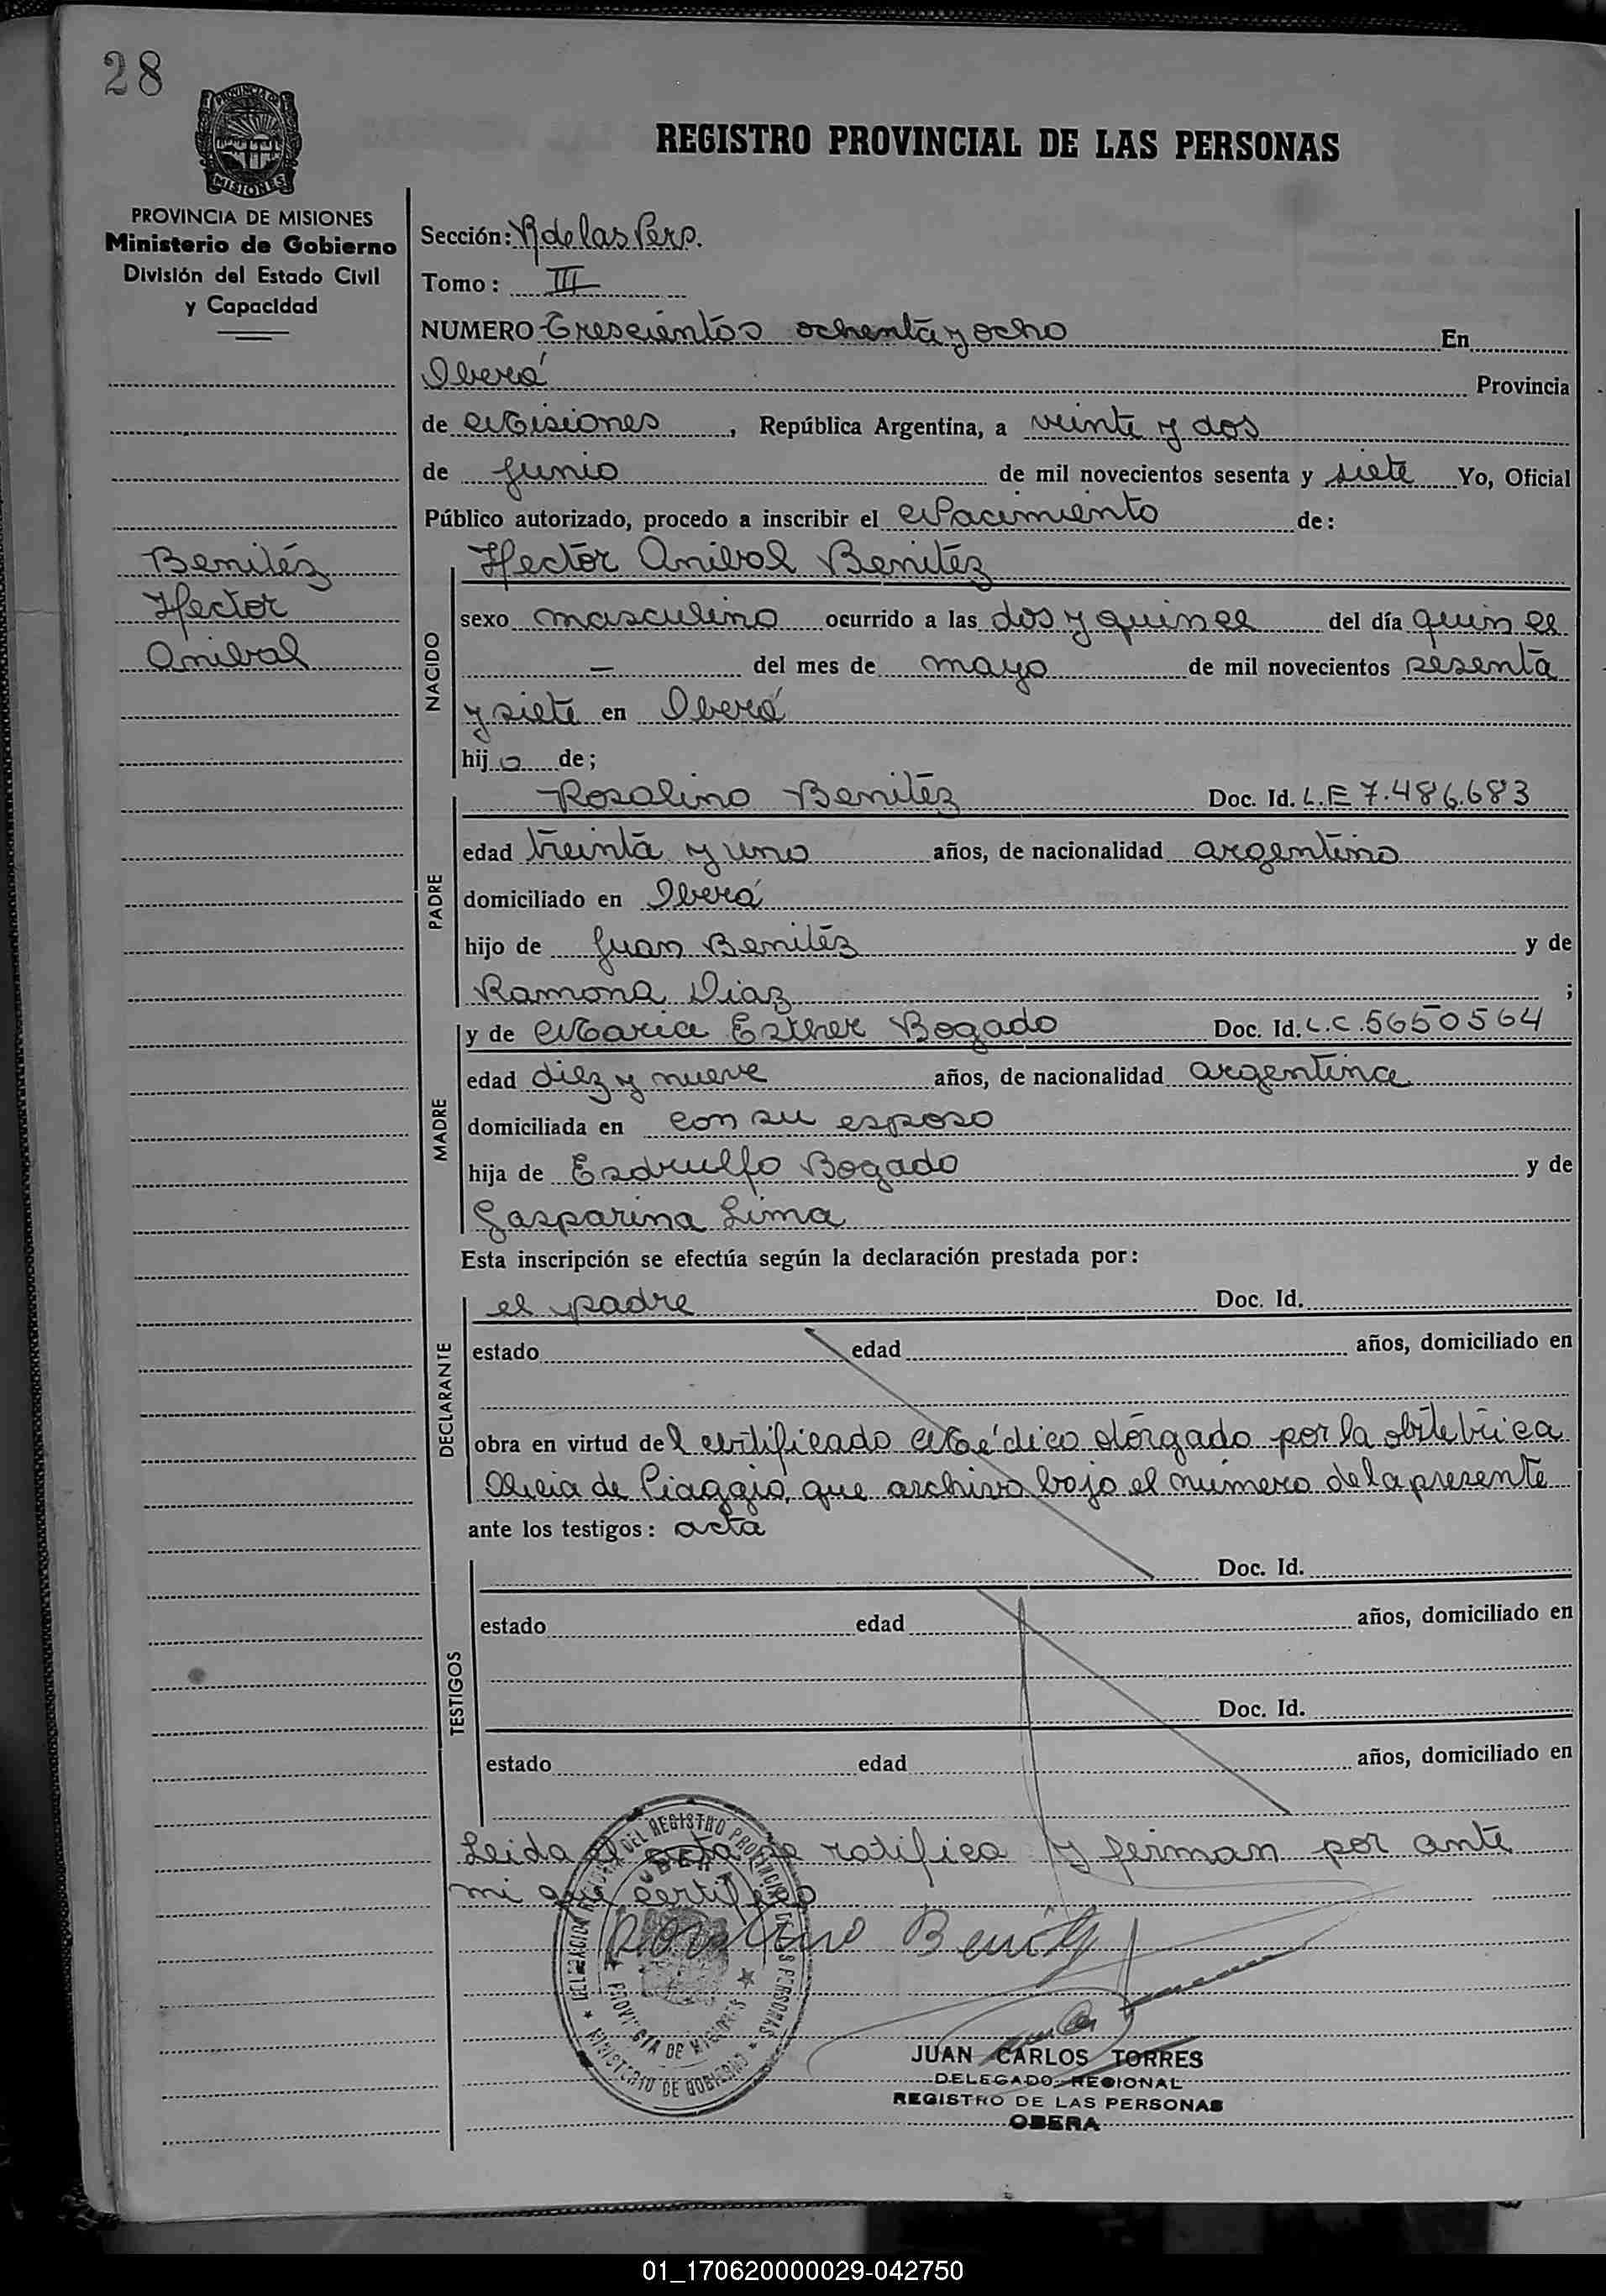 28
PROVINCIA DE
MISIONES
REGISTRO PROVINCIAL DE LAS PERSONAS
PROVINCIA DE MISIONES
Ministerio de Gobierno
División del Estado Civil
y Capacidad
Sección: R de las Pers.
Tomo: III
NUMERO Trescientos ochenta y ocho En
Oberá Provincia
de Misiones, República Argentina, a veinte y dos
de junio de mil novecientos sesenta y siete Yo, Oficial
Público autorizado, procedo a inscribir el Nacimiento de:
Benitéz
Hector
Anibal
Hector Anibal Benitéz
NACIDO
sexo masculino ocurrido a las dos y quince del día quince
— del mes de mayo de mil novecientos sesenta
y siete en Oberá
hijo de;
PADRE
Rosalino Benitéz Doc. Id. L.E 7.486.683
edad treinta y uno años, de nacionalidad argentino
domiciliado en Oberá
hijo de Juan Benitéz y de
Ramona Diaz ;
MADRE
y de Maria Esther Bogado Doc. Id. L.C. 5650564
edad diez y nueve años, de nacionalidad argentina
domiciliada en con su esposo
hija de Esdrulfo Bogado y de
Gasparina Lima
Esta inscripción se efectúa según la declaración prestada por:
DECLARANTE
el padre Doc. Id.
estado edad años, domiciliado en
obra en virtud del certificado Médico otorgado por la obstetrica
Alicia de Piaggio, que archivo bajo el número de la presente
ante los testigos: acta
TESTIGOS
Doc. Id.
estado edad años, domiciliado en
Doc. Id.
estado edad años, domiciliado en
Leida el acta se ratifica y firman por ante
mi que certifico
Rosalino Benitez
DELEGACION REGIONAL DEL REGISTRO PROVINCIAL DE LAS PERSONAS
OBERA
PROVINCIA DE MISIONES
MINISTERIO DE GOBIERNO
JUAN CARLOS TORRES
DELEGADO REGIONAL
REGISTRO DE LAS PERSONAS
OBERA
01_170620000029-042750